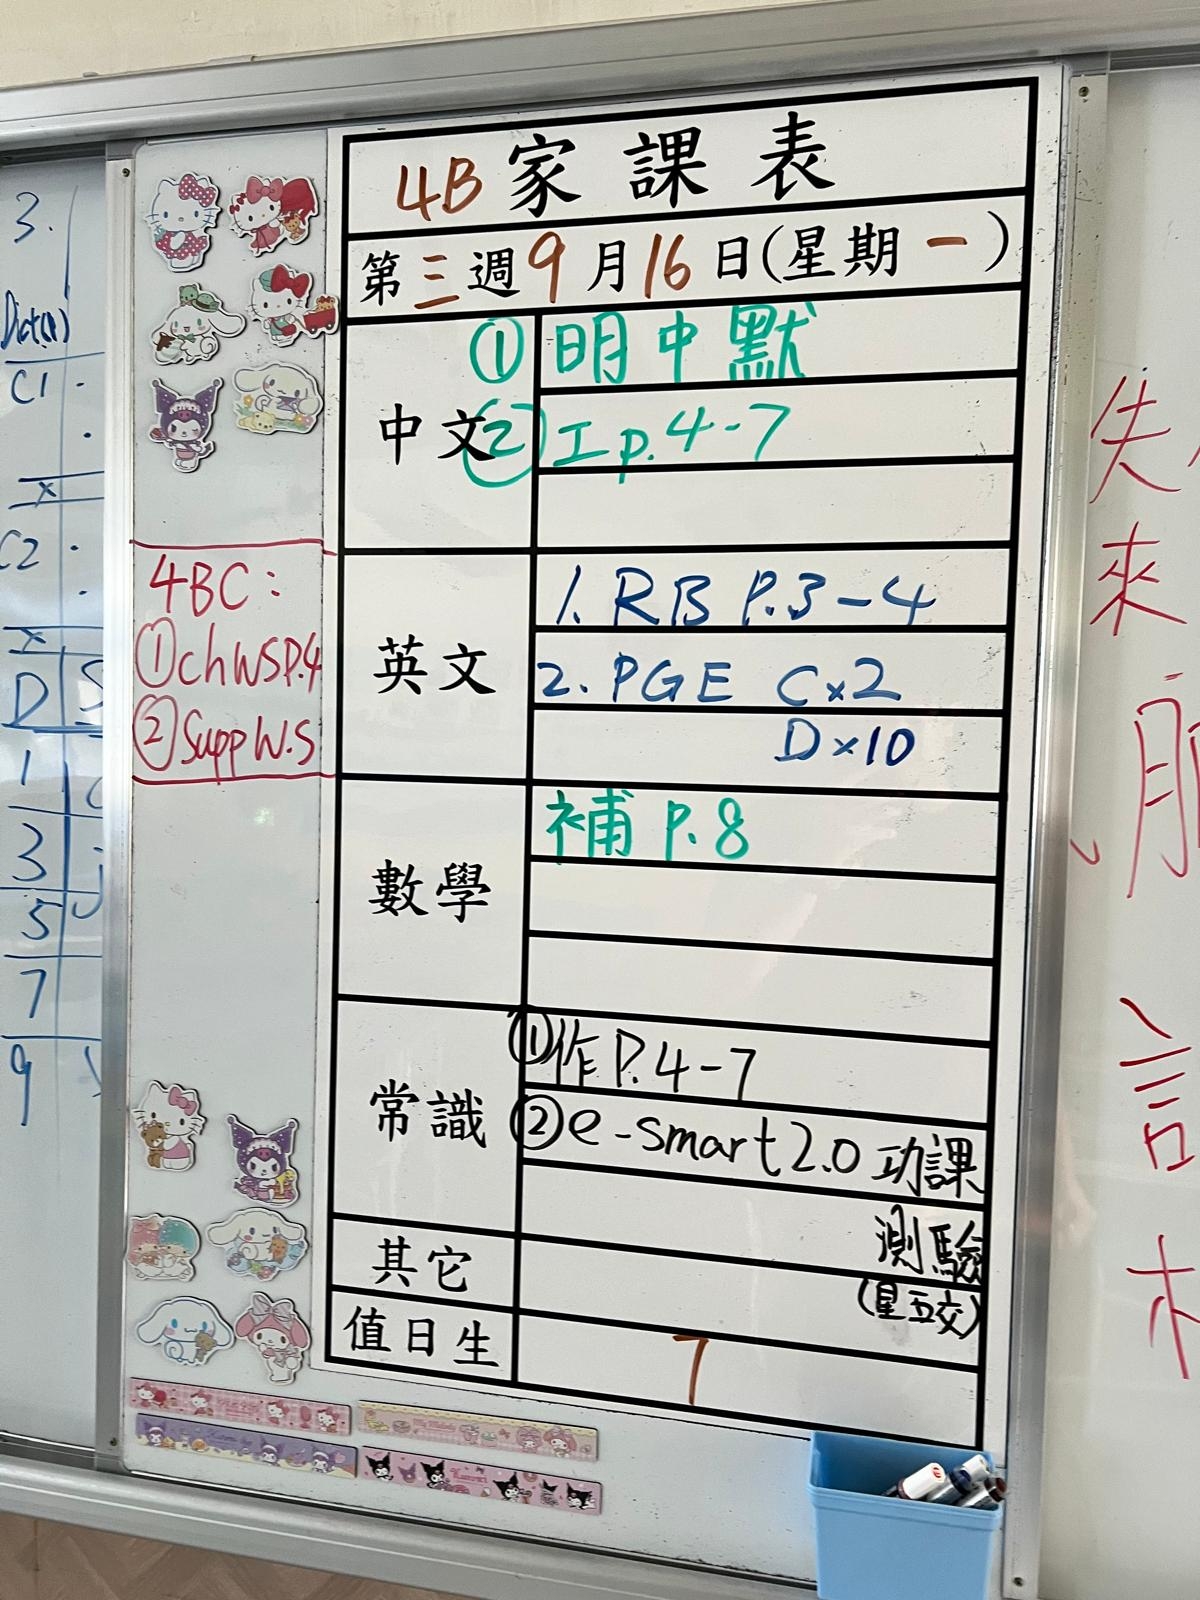 4B 家課表
第三週9月16日(星期一)
中文
① 明中默
② 工p.4-7
英文
1. RB P.3-4
2. PGE C×2
D×10
數學
補 P.8
常識
① 作P.4-7
② e-smart2.0 功課
測驗
(星五交)
其它
值日生
7
4BC:
① ch WS P.4
② Supp W.S
3.
Dict(1)
C1
x
C2
x
D
S
1
3
5
7
9
失
來
言